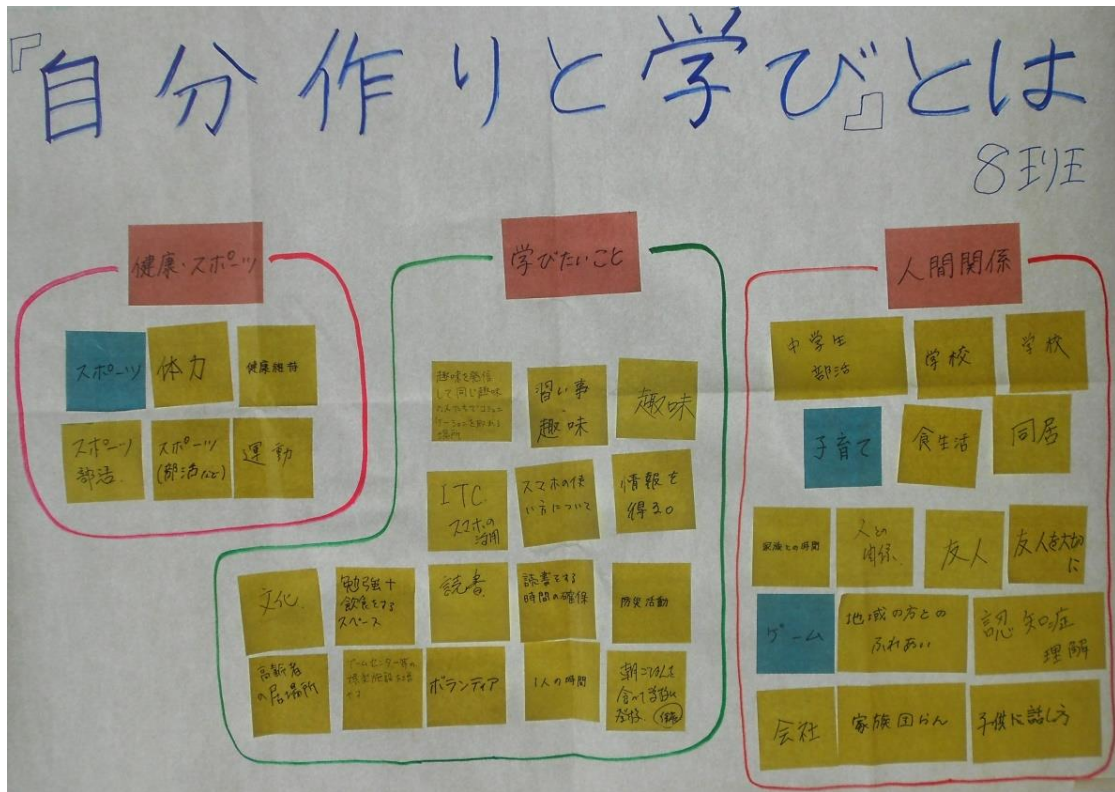 『自分作りと学び』とは
8班
健康・スポーツ
スポーツ
体力
健康維持
スポーツ
部活
スポーツ
(部活など)
運動
学びたいこと
趣味を発信
して同じ趣味
の人たちでコミュニ
ケーションを取れる
場所
習い事
・
趣味
趣味
ITC
スマホの
活用
スマホの使
い方について
情報を
得る。
文化
勉強+
飲食をする
スペース
読書
読書をする
時間の確保
防災活動
高齢者
の居場所
ゲームセンター等の
ボランティア
1人の時間
朝ごはんを
食べて学校に
登校
人間関係
中学生
部活
学校
学校
子育て
食生活
同居
家族との時間
人との
関係
友人
友人を大切
に
ゲーム
地域の方との
ふれあい
認知症
理解
会社
家族団らん
子供に話し方